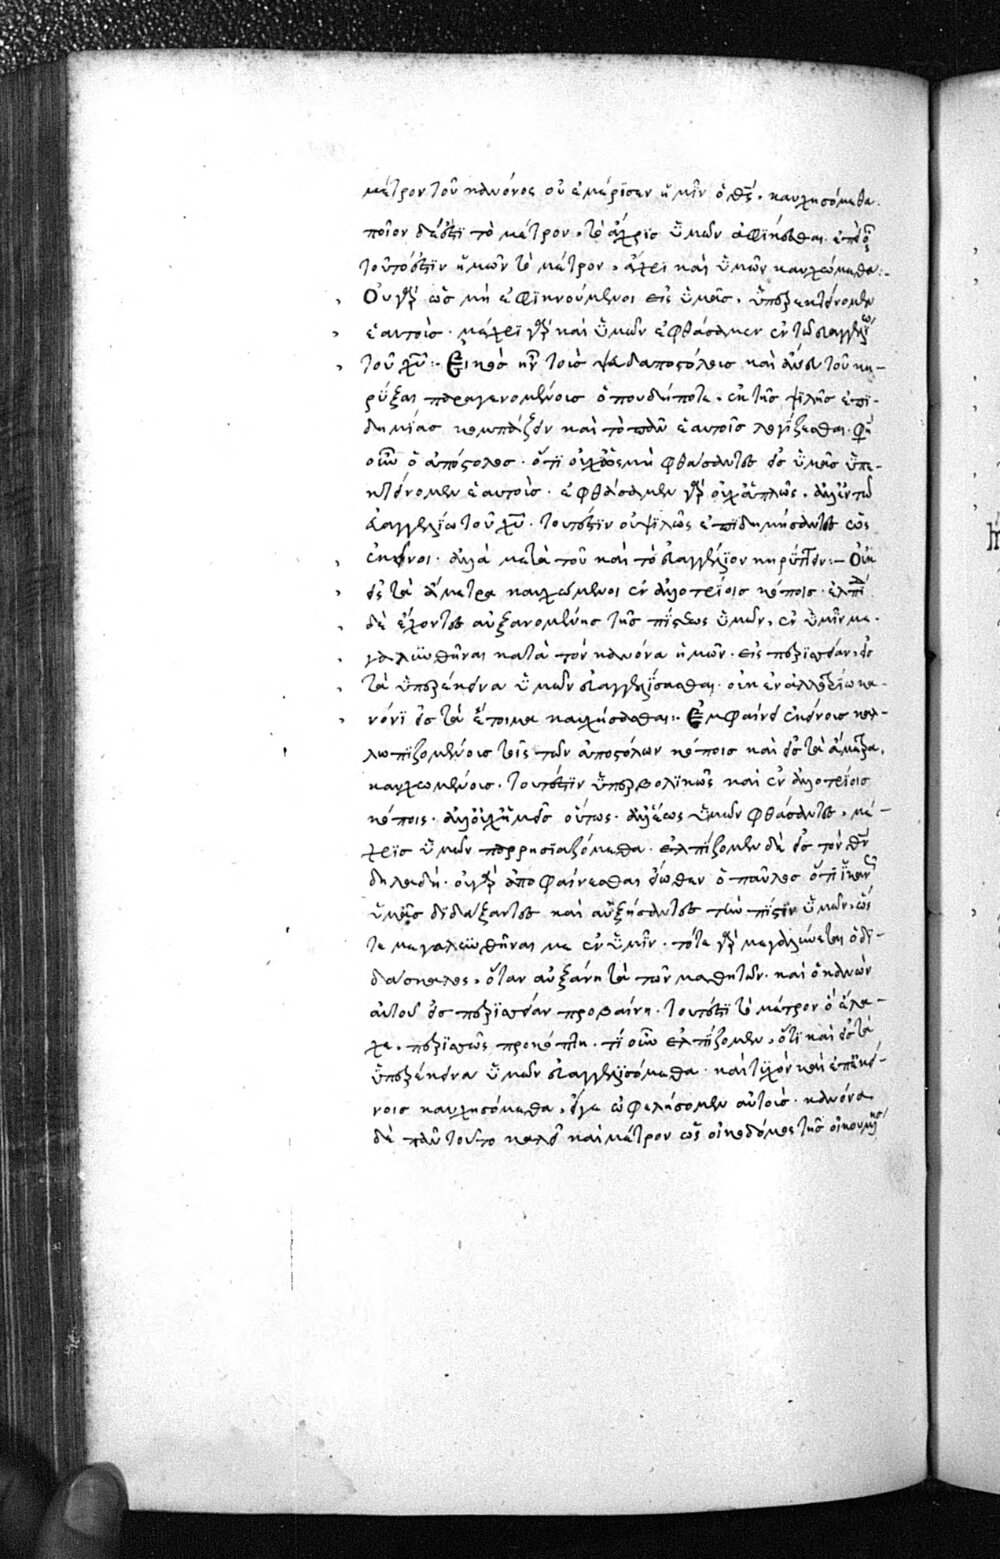 μέτρον τοῦ κανόνος οὗ ἐμέρισεν ἡμῖν ὁ θς, καυχησόμεθα.
ποῖον δέ ἐστι τὸ μέτρον, τὸ ἄχρις ὑμῶν ἀφικέσθαι.
τουτέστιν ἡμῶν τὸ μέτρον, ἄχρι καὶ ὑμῶν καυχώμεθα:
Οὐ γὰρ ὡς μὴ ἐφικνούμενοι εἰς ὑμᾶς, ὑπερεκτείνομεν
ἑαυτούς. μέχρι γὰρ καὶ ὑμῶν ἐφθάσαμεν ἐν τῷ εὐαγγελίῳ
τοῦ χυ:- Εἰκὸς ἦν τοῖς ψευδαποστόλοις καὶ ἄνευ τοῦ κη-
ρύξαι παραγενομένοις ὁπουδήποτε, ἐκ τῆς ψιλῆς ἐπι-
δημίας κομπάζειν καὶ τὸ πᾶν ἑαυτοῖς λογίζεσθαι. φη
οὖν ὁ ἀπόστολος. ὅτι οὐχ ὡς μὴ φθάσαντες εἰς ὑμᾶς ὑπε-
κτείνομεν ἑαυτούς. ἐφθάσαμεν γὰρ οὐχ ἁπλῶς, ἀλλ' ἐν τῷ
εὐαγγελίῳ τοῦ χυ. τουτέστιν οὐ ψιλῶς ἐπιδημήσαντες ὡς
ἐκεῖνοι. ἀλλὰ μετὰ τοῦ καὶ τὸ εὐαγγέλιον κηρύττειν:- Οὐκ
εἰς τὰ ἄμετρα καυχώμενοι ἐν ἀλλοτρίοις κόποις. ἐλπίδα
δὲ ἔχοντες αὐξανομένης τῆς πίστεως ὑμῶν, ἐν ὑμῖν με-
γαλυνθῆναι κατὰ τὸν κανόνα ἡμῶν. εἰς περισσείαν, εἰς
τὰ ὑπερέκεινα ὑμῶν εὐαγγελίσασθαι. οὐκ ἐν ἀλλοτρίῳ κα-
νόνι εἰς τὰ ἕτοιμα καυχήσασθαι:- Ἐμφαίνει ἐκείνοις καλ-
λωπιζομένοις τοῖς τῶν ἀποστόλων κόποις καὶ εἰς τὰ ἄμετρα,
καυχωμένοις. τουτέστιν ὑπερβολικῶς καὶ ἐν ἀλλοτρίοις
κόποις. ἀλλ' οὐχ ἡμεῖς οὕτως. ἀλλ' ἕως ὑμῶν φθάσαντες, μέ-
χρις ὑμῶν παρρησιαζόμεθα. ἐλπίζομεν δὲ εἰς τὸν θν
δηλαδή. οὐ γὰρ ἀποφαίνεσθαι εἴωθεν ὁ παῦλος ὅτι
ὑμᾶς διδάξαντες καὶ αὐξήσαντες τὴν πίστιν ὑμῶν, ὥς
τε μεγαλυνθῆναι με ἐν ὑμῖν. τότε γὰρ μεγαλύνεται ὁ δι-
δάσκαλος, ὅταν αὐξάνῃ τὰ τῶν μαθητῶν. καὶ ὁ κανὼν
αὐτοῦ εἰς περισσείαν προβαίνῃ. τουτέστι τὸ μέτρον ὃ ἔλα-
χε, περισσῶς προκόπτῃ. τί οὖν ἐλπίζομεν, ὅτι καὶ εἰς τὰ
ὑπερέκεινα ὑμῶν εὐαγγελισόμεθα. καὶ τυχὸν καὶ ἐπ' ἐκεί-
νοις καυχησόμεθα, εἴγε ὠφελήσομεν αὐτούς. κανόνα
δὲ πάλιν τοῦτο καλεῖ καὶ μέτρον ὡς οἰκοδόμος τῆς οἰκουμένης